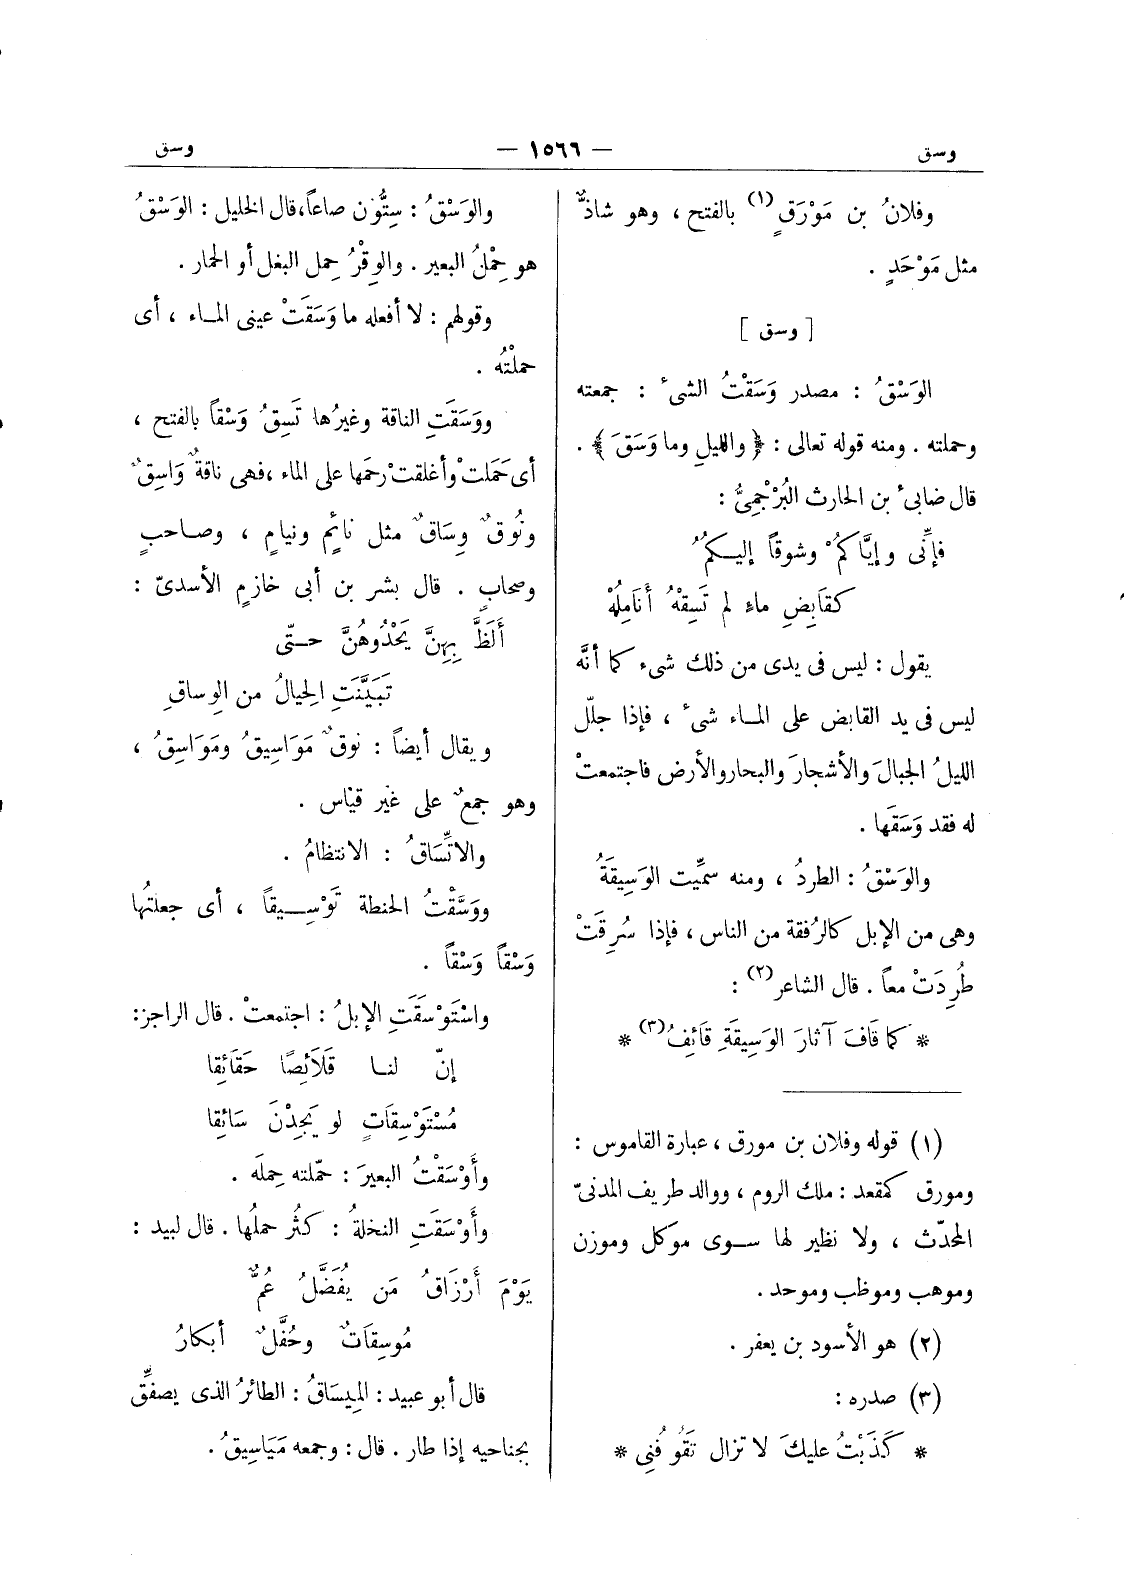 وسق
— ١٥٦٦ —
وسق
وفلانُ بن مَوْرَقٍ(١) بالفتح ، وهو شاذٌّ
مثل مَوْحَدٍ .
[ وسق ]
الوَسْقُ : مصدر وَسَقْتُ الشىءَ : جمعته
وحملته . ومنه قوله تعالى : ﴿ والليلِ وما وَسَقَ ﴾ .
قال ضابئ بن الحارث البُرْجُمِىُّ :
فإنِّى وإيَّاكُمْ وشوقاً إليكُمُ
كقَابِضِ ماءٍ لم تَسِقْهُ أَنَامِلُهْ
يقول : ليس فى يدى من ذلك شىء كما أنَّه
ليس فى يد القابض على المـاء شىءٌ ، فإذا جلّل
الليلُ الجبالَ والأشجارَ والبحاروالأرض فاجتمعتْ
له فقد وَسَقَها .
والوَسْقُ : الطردُ ، ومنه سمِّيت الوَسِيقَةُ
وهى من الإبل كالرُفقة من الناس ، فإذا سُرِقَتْ
طُرِدَتْ معاً . قال الشاعر(٢) :
* كما قَافَ آثارَ الوَسِيقَةِ قَائِفُ(٣) *
(١) قوله وفلان بن مورق ، عبارة القاموس :
ومورق كمقعد : ملك الروم ، ووالد طريف المدنىّ
المحدّث ، ولا نظير لها سـوى موكل وموزن
وموهب وموظب وموحد .
(٢) هو الأسود بن يعفر .
(٣) صدره :
* كَذَبْتُ عليكَ لا تزال تَقُوفُنِى *
والوَسْقُ : سِتُّون صاعاً،قال الخليل : الوَسْقُ
هو حِمْلُ البعير . والوِقْرُ حِمل البغل أو الحمار .
وقولهم : لا أفعله ما وَسَقَتْ عينى المـاء ، أى
حملتْهُ .
ووَسَقَتِ الناقة وغيرُها تَسِقُ وَسْقاً بالفتح ،
أى حَمَلت وأغلقتْ رحمَها على الماء ،فهى ناقةٌ وَاسِقٌ
ونُوقٌ وِسَاقٌ مثل نائِمٍ ونيامٍ ، وصـاحبٍ
وصحابٍ . قال بشر بن أبى خازمٍ الأسدىّ :
أَلَظَّ بِهِنَّ يَحْدُوهُنَّ حـتّى
تَبَيَّنَتِ الحِيالُ من الوِساقِ
ويقال أيضاً : نوقٌ مَوَاسِيقُ ومَوَاسِقُ ،
وهو جمعٌ على غير قياس .
والاتِّسَاقُ : الانتظامُ .
ووَسَّقْتُ الحنطة تَوْسِـيقاً ، أى جعلتُها
وَسْقاً وَسْقاً .
واسْتَوْسَقَتِ الإبلُ : اجتمعتْ . قال الراجز:
إنّ لنـا قَلَائِصًا حَقَائِقا
مُسْتَوْسِقَاتٍ لو يَجِدْنَ سَائِقا
وأَوْسَقْتُ البعيرَ : حمّلته حِملَه .
وأَوْسَقَتِ النخلةُ : كثُر حملُها . قال لبيد :
يَوْمَ أَرْزَاقُ مَن يُفَضَّلُ عُمٌّ
مُوسِقَاتٌ وحُفَّلٌ أبكارُ
قال أبو عبيد : المِيسَاقُ : الطائرُ الذى يصفِّق
بجناحيه إذا طار . قال : وجمعه مَيَاسِيقُ .